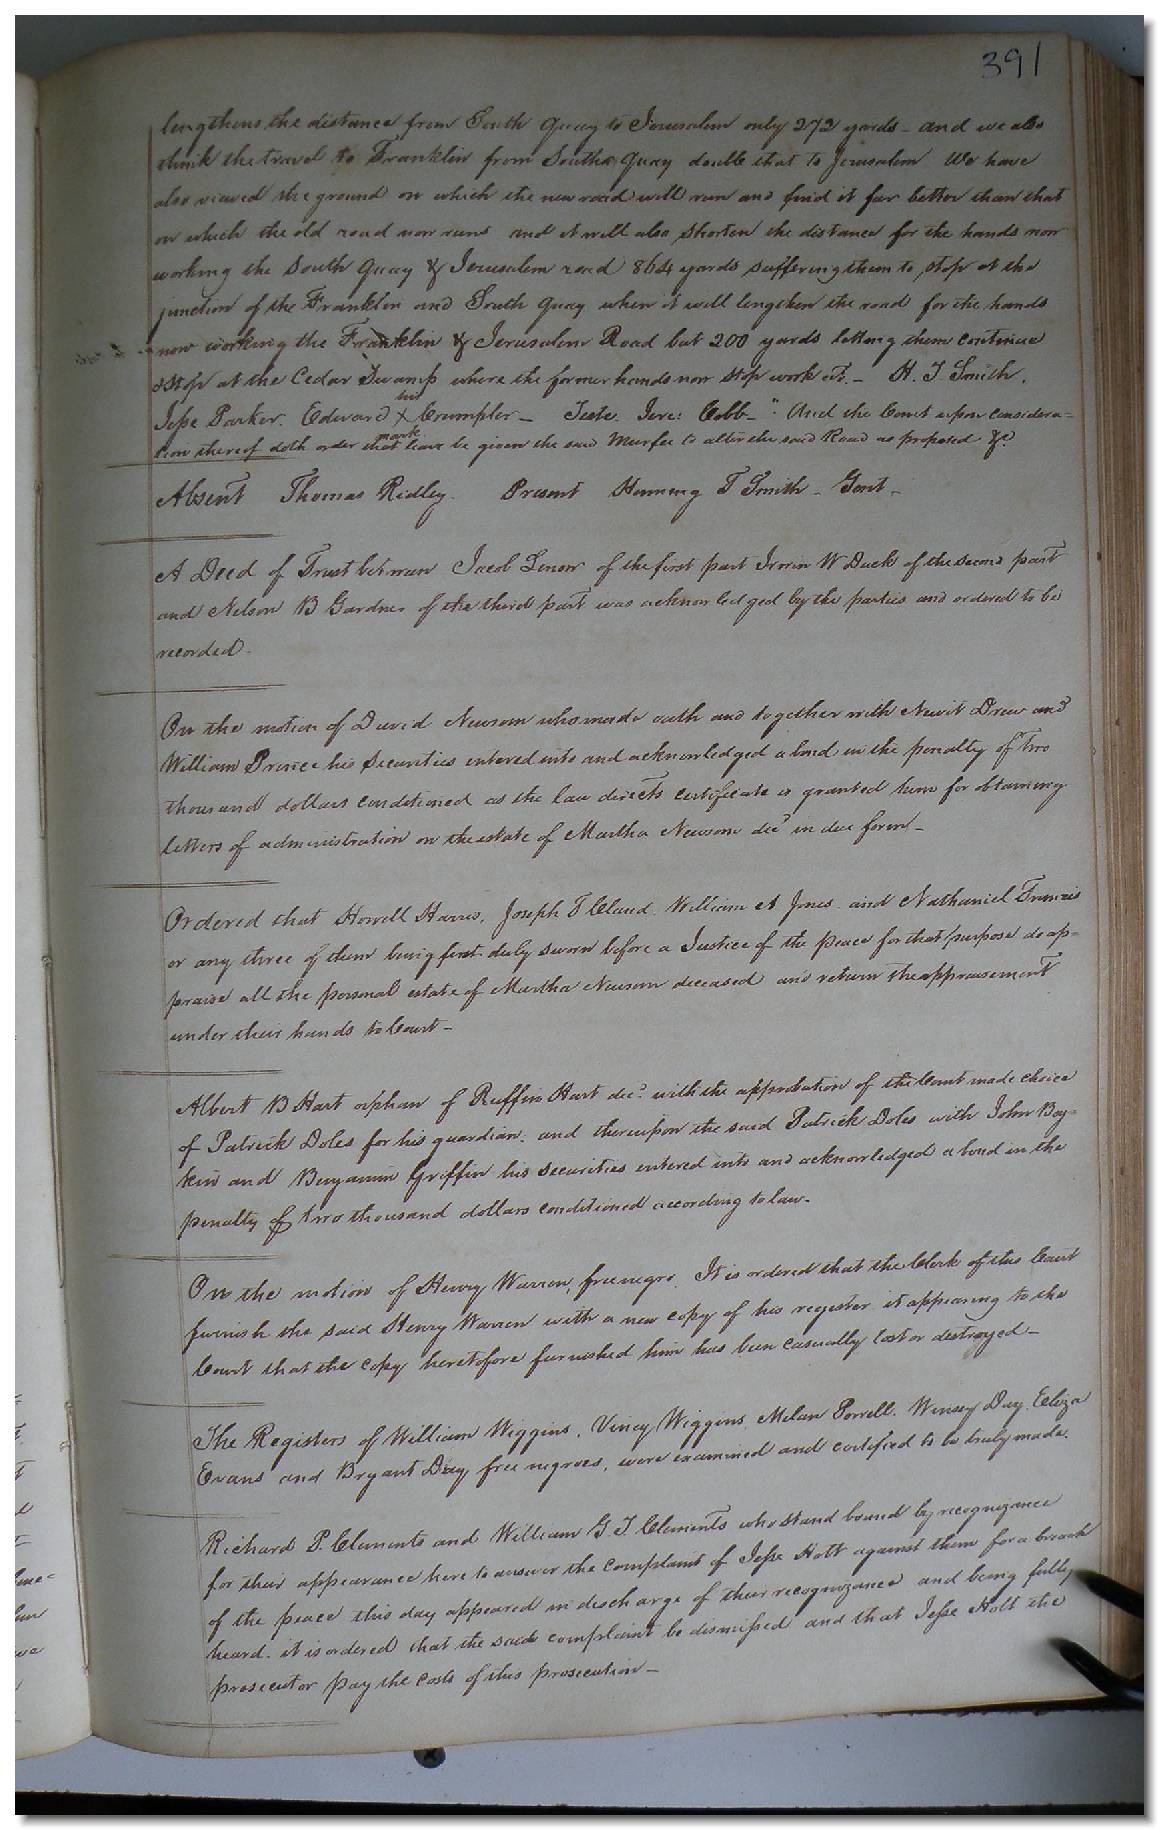 391
lengthens the distance from South Quay to Jerusalem only 272 yards - and we also
think the travel to Franklin from South Quay double that to Jerusalem We have
also viewed the ground on which the new road will run and find it far better than that
on which the old road now runs and it will also shorten the distance for the hands now
working the South Quay & Jerusalem road 864 yards suffering them to stop at the
junction of the Franklin and South Quay when it will lengthen the road for the hands
now working the Franklin & Jerusalem Road but 200 yards letting them continue
& stop at the Cedar Swamp where the former hands now stop work at. - H. T Smith.
his
Jesse Parker. Edward X Crumpler - Teste. Jere: Cobb -" And the Court upon considera-
mark
tion thereof doth order that leave be given the said Murfee to alter the said Road as proposed &c
Absent Thomas Ridley. Present Henning T Smith - Gent -
A Deed of Trust between Jacob Lenow of the first part Irwin W Duck of the second part
and Nelson B Gardner of the third part was acknowledged by the parties and ordered to be
recorded.
On the motion of David Newsom who made oath and together with Newit Drew and
William Prince his securities entered into and acknowledged a bond in the penalty of Two
thousand dollars conditioned as the law directs certificate is granted him for obtaining
letters of administration on the estate of Martha Newsom decd in due form -
Ordered that Howell Harris, Joseph T Claud. William A Jones and Nathaniel Francis
or any three of them being first duly sworn before a Justice of the peace for that purpose do ap-
praise all the personal estate of Martha Newsom deceased and return the appraisement
under their hands to Court -
Albert B Hart orphan of Ruffin Hart decd. with the approbation of the Court made choice
of Patrick Doles for his guardian. and thereupon the said Patrick Doles with John Boy-
kin and Benjamin Griffin his securities entered into and acknowledged a bond in the
penalty of two thousand dollars conditioned according to law -
On the motion of Henry Warren, free negro, It is ordered that the Clerk of this Court
furnish the said Henry Warren with a new copy of his register it appearing to the
Court that the copy heretofore furnished him has been casually lost or destroyed -
The Registers of William Wiggins, Viney Wiggins Milan Porrell. Winsey Day. Eliza
Evans and Bryant Day free negroes, were examined and certified to be truly made.
Richard P. Clements and William G. T. Clements who stand bound by recognizance
for their appearance here to answer the complaint of Jesse Holt against them for a breach
of the peace this day appeared in discharge of their recognizance and being fully
heard. it is ordered that the said complaint be dismissed and that Jesse Holt the
prosecutor pay the costs of this prosecution -